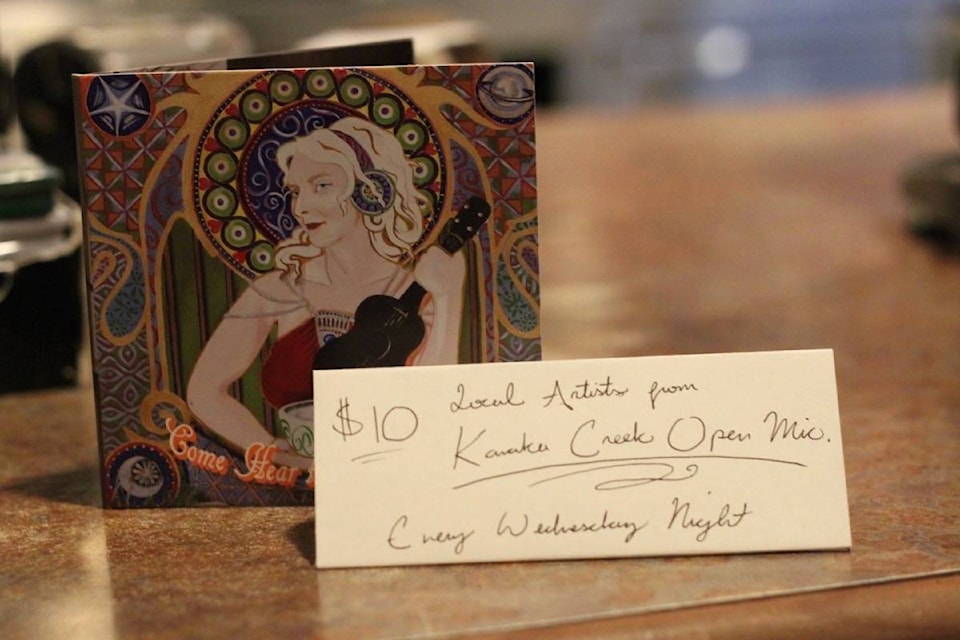 Come Hear
$10
Local Artists from
Kanaka Creek Open Mic.
Every Wednesday Night